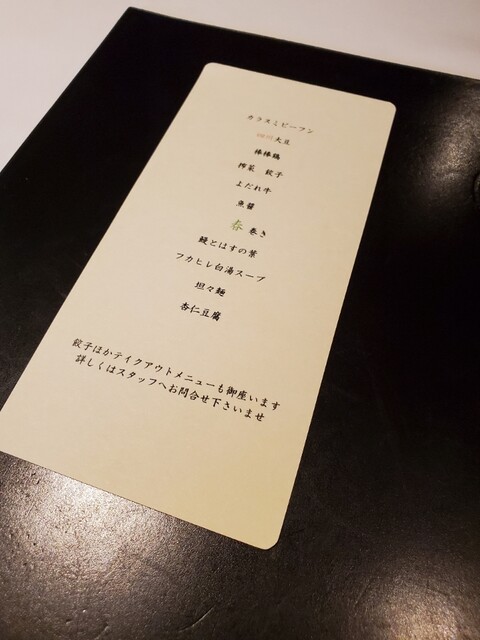 カラスミビーフン
四川大豆
棒棒鶏
搾菜 餃子
よだれ牛
魚醤
春巻き
鰻とはすの葉
フカヒレ白湯スープ
坦々麺
杏仁豆腐
餃子ほかテイクアウトメニューも御座います
詳しくはスタッフへお問合せ下さいませ